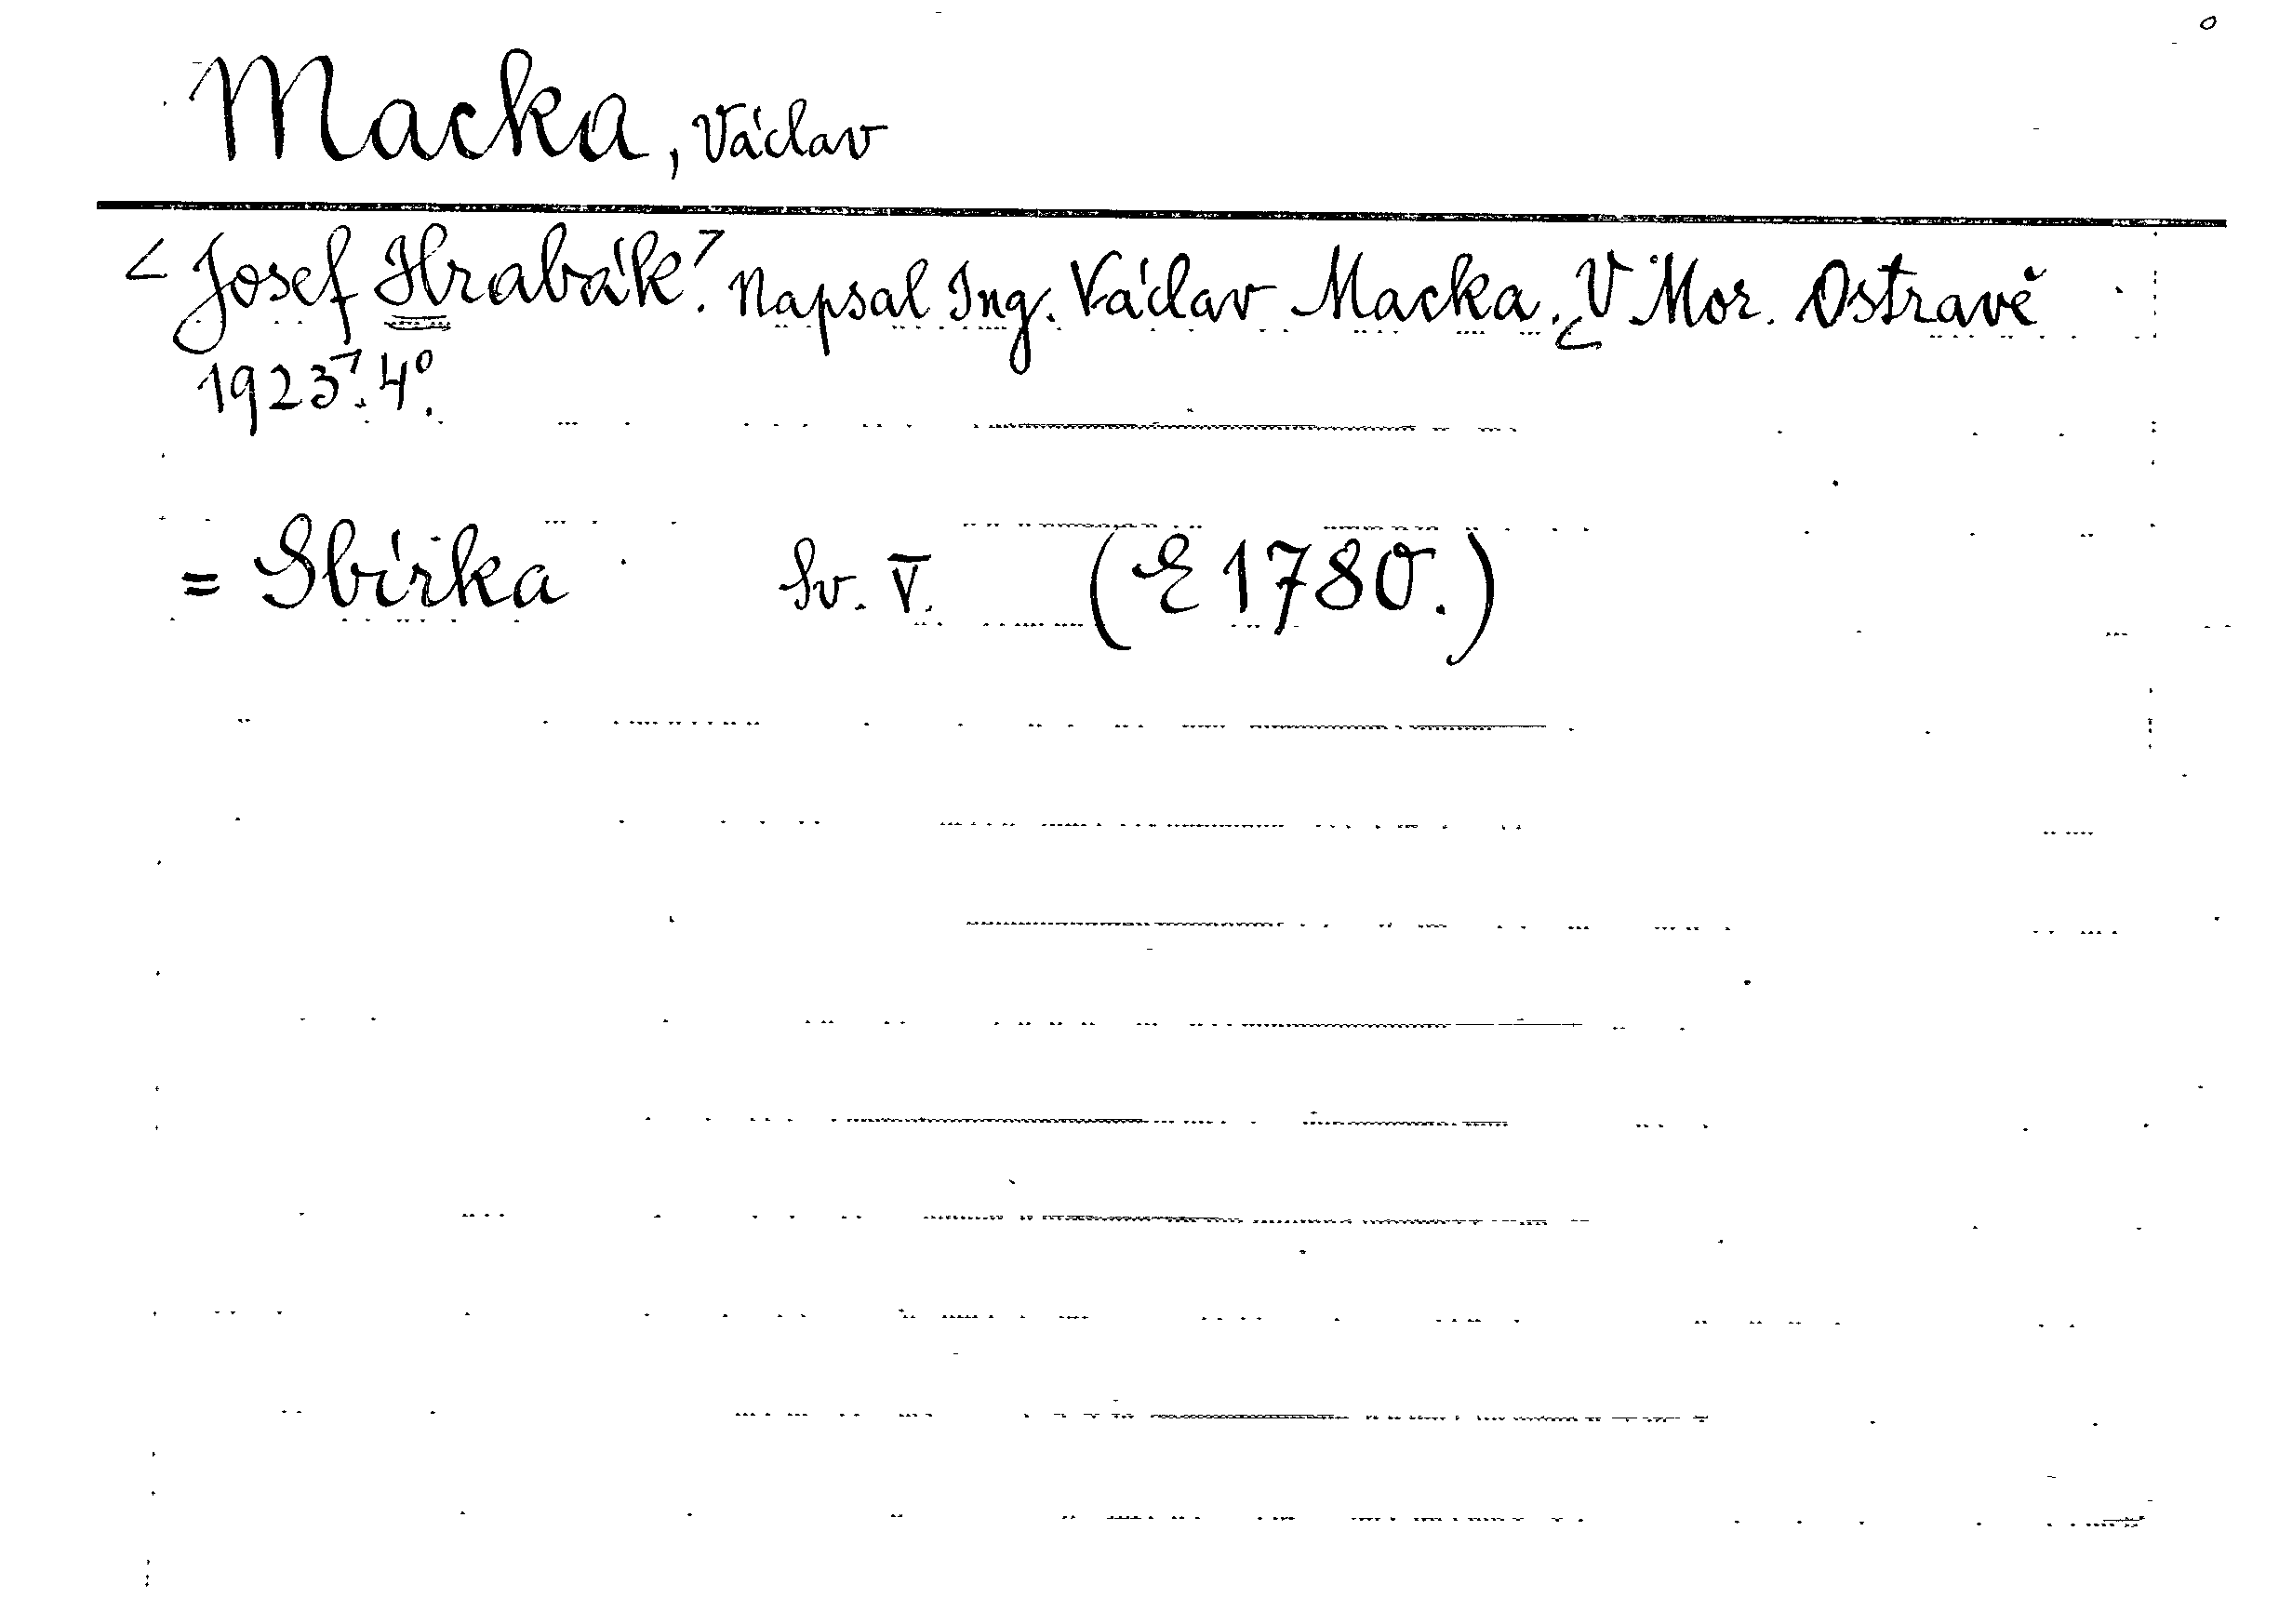 Macka, Václav
< Josef Hrabák.> Napsal Ing. Václav Macka. <V Mor. Ostravě
1923>. 4°.
= Sbírka Sv. V. (E 1780.)